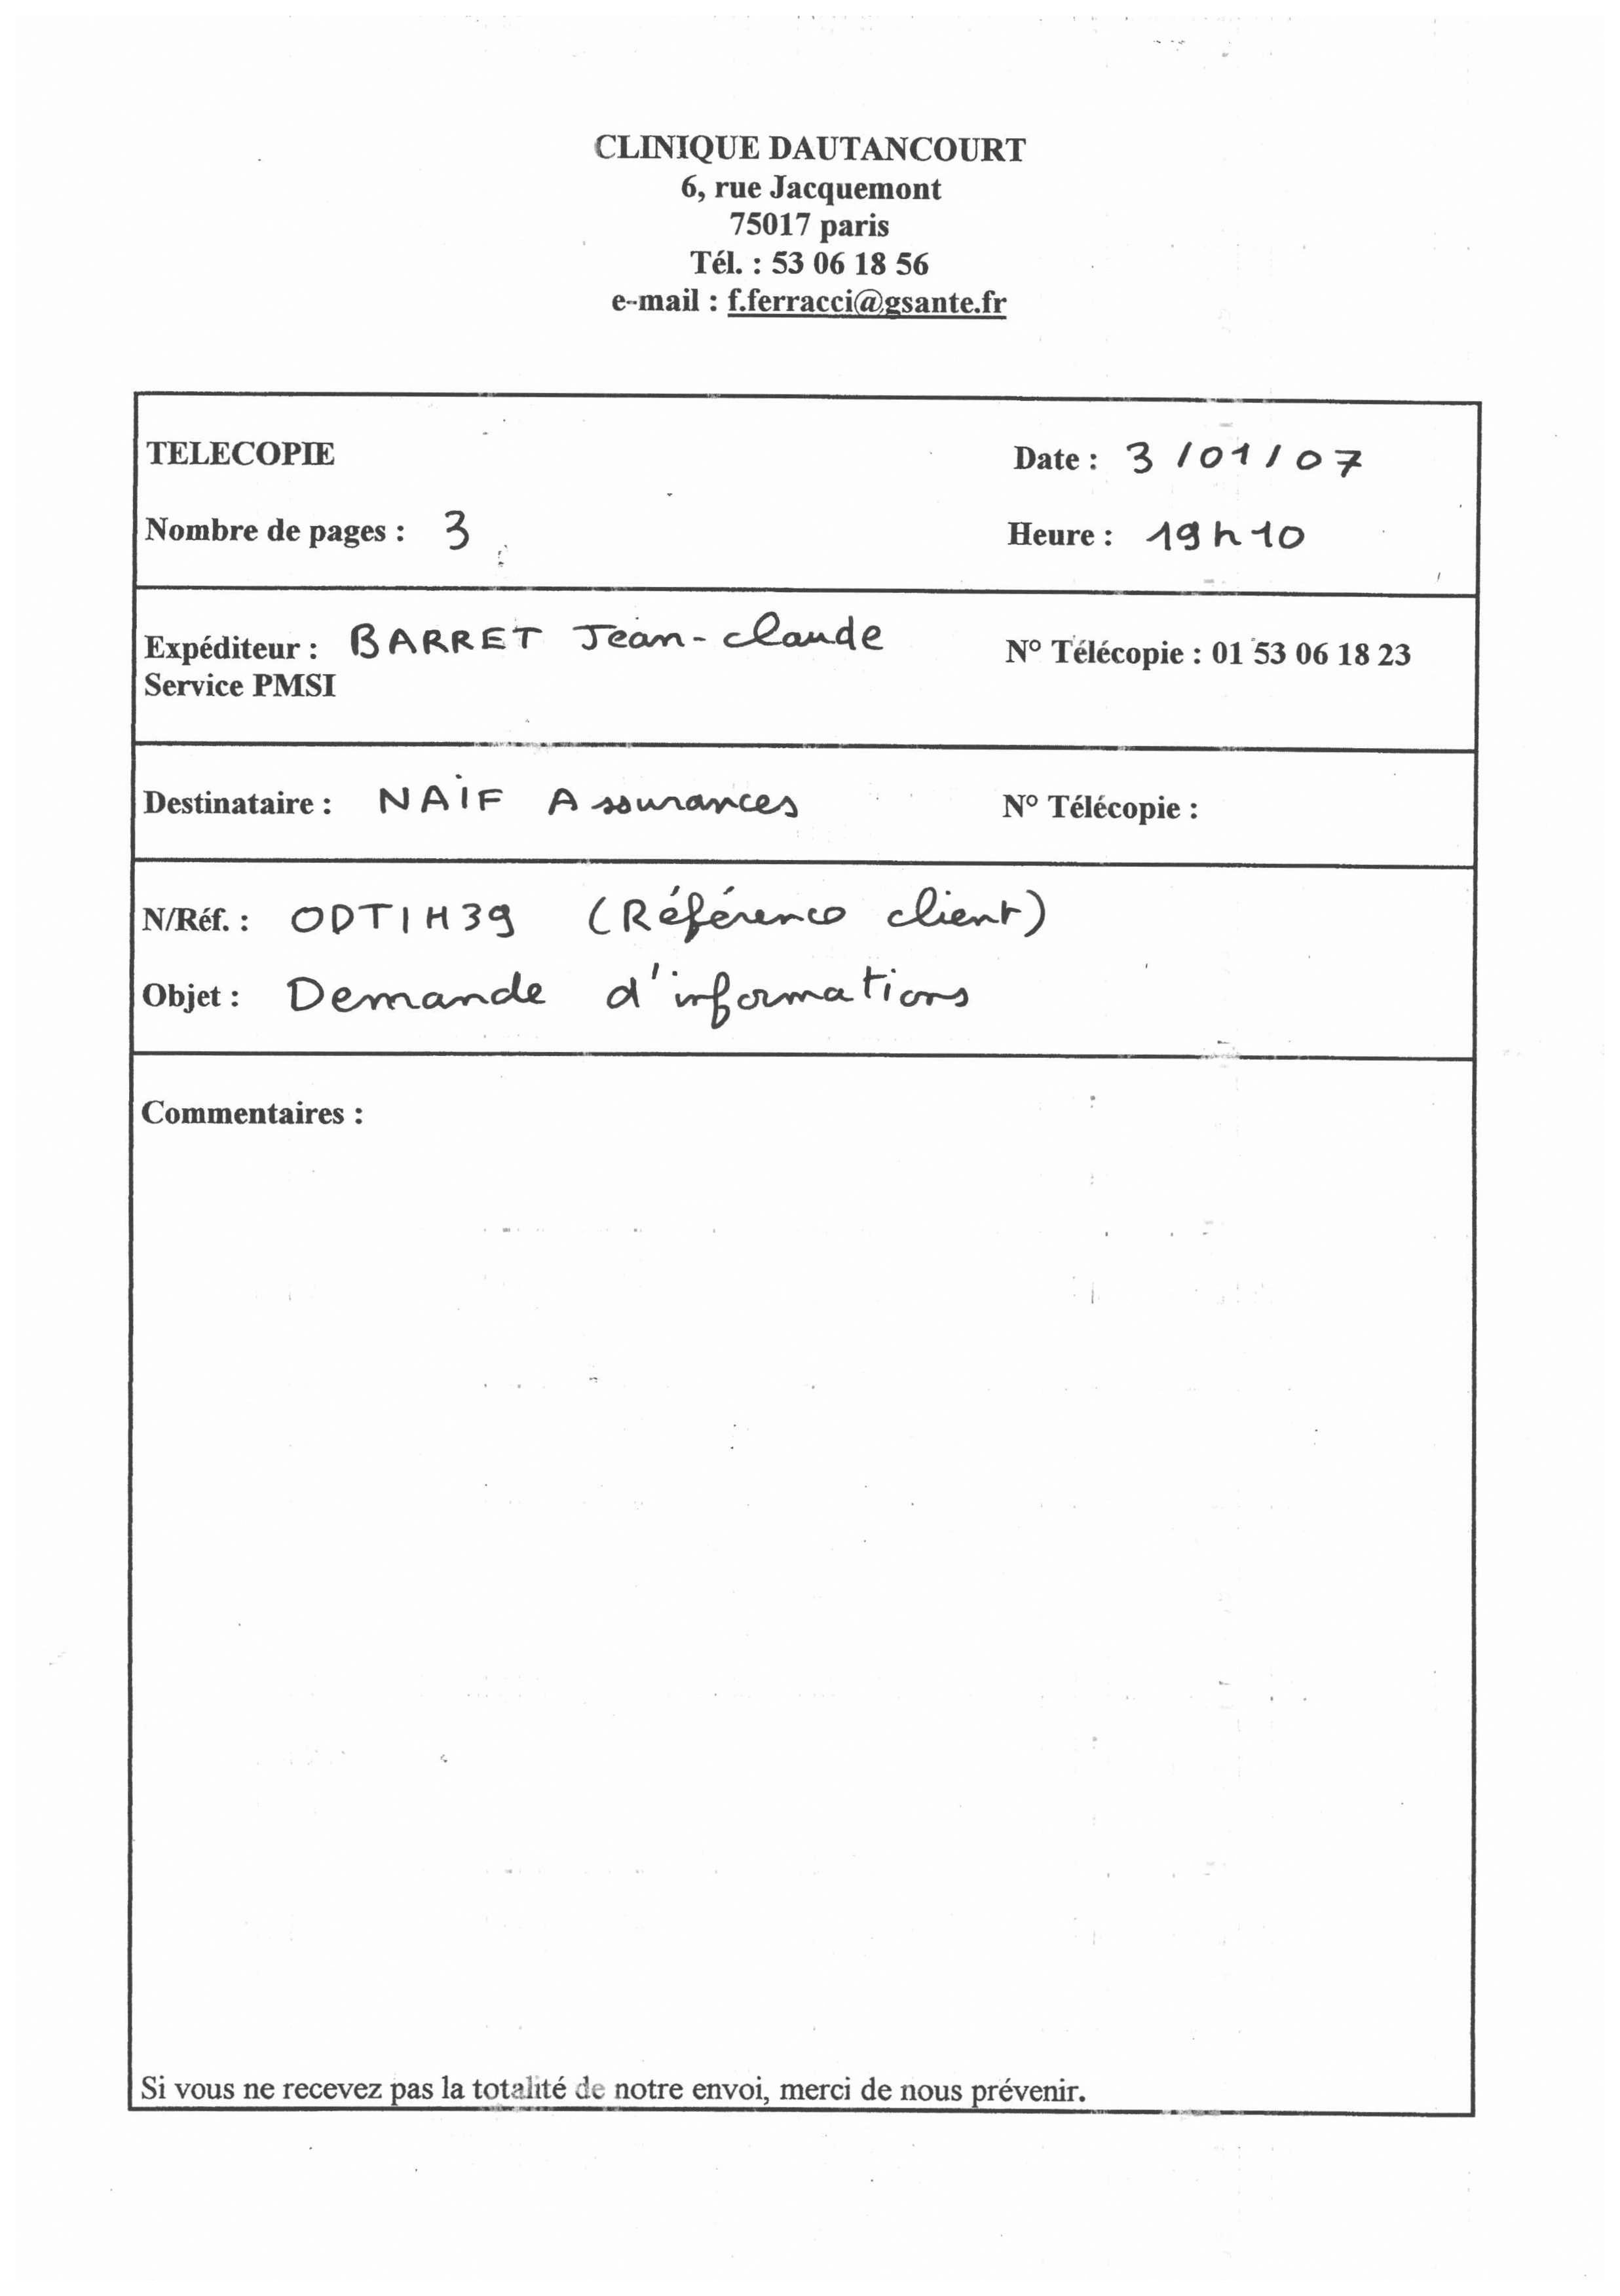 CLINIQUE DAUTANCOURT
6, rue Jacquemont
75017 paris
Tél. : 53 06 18 56
e-mail : f.ferracci@gsante.fr
TELECOPIE
Date : 3/01/07
Nombre de pages : 3
Heure : 19h10
Expéditeur : BARRET Jean-claude
N° Télécopie : 01 53 06 18 23
Service PMSI
Destinataire : NAIF Assurances
N° Télécopie :
N/Réf. : ODTIH39 (Référence client)
Objet : Demande d'informations
Commentaires :
Si vous ne recevez pas la totalité de notre envoi, merci de nous prévenir.